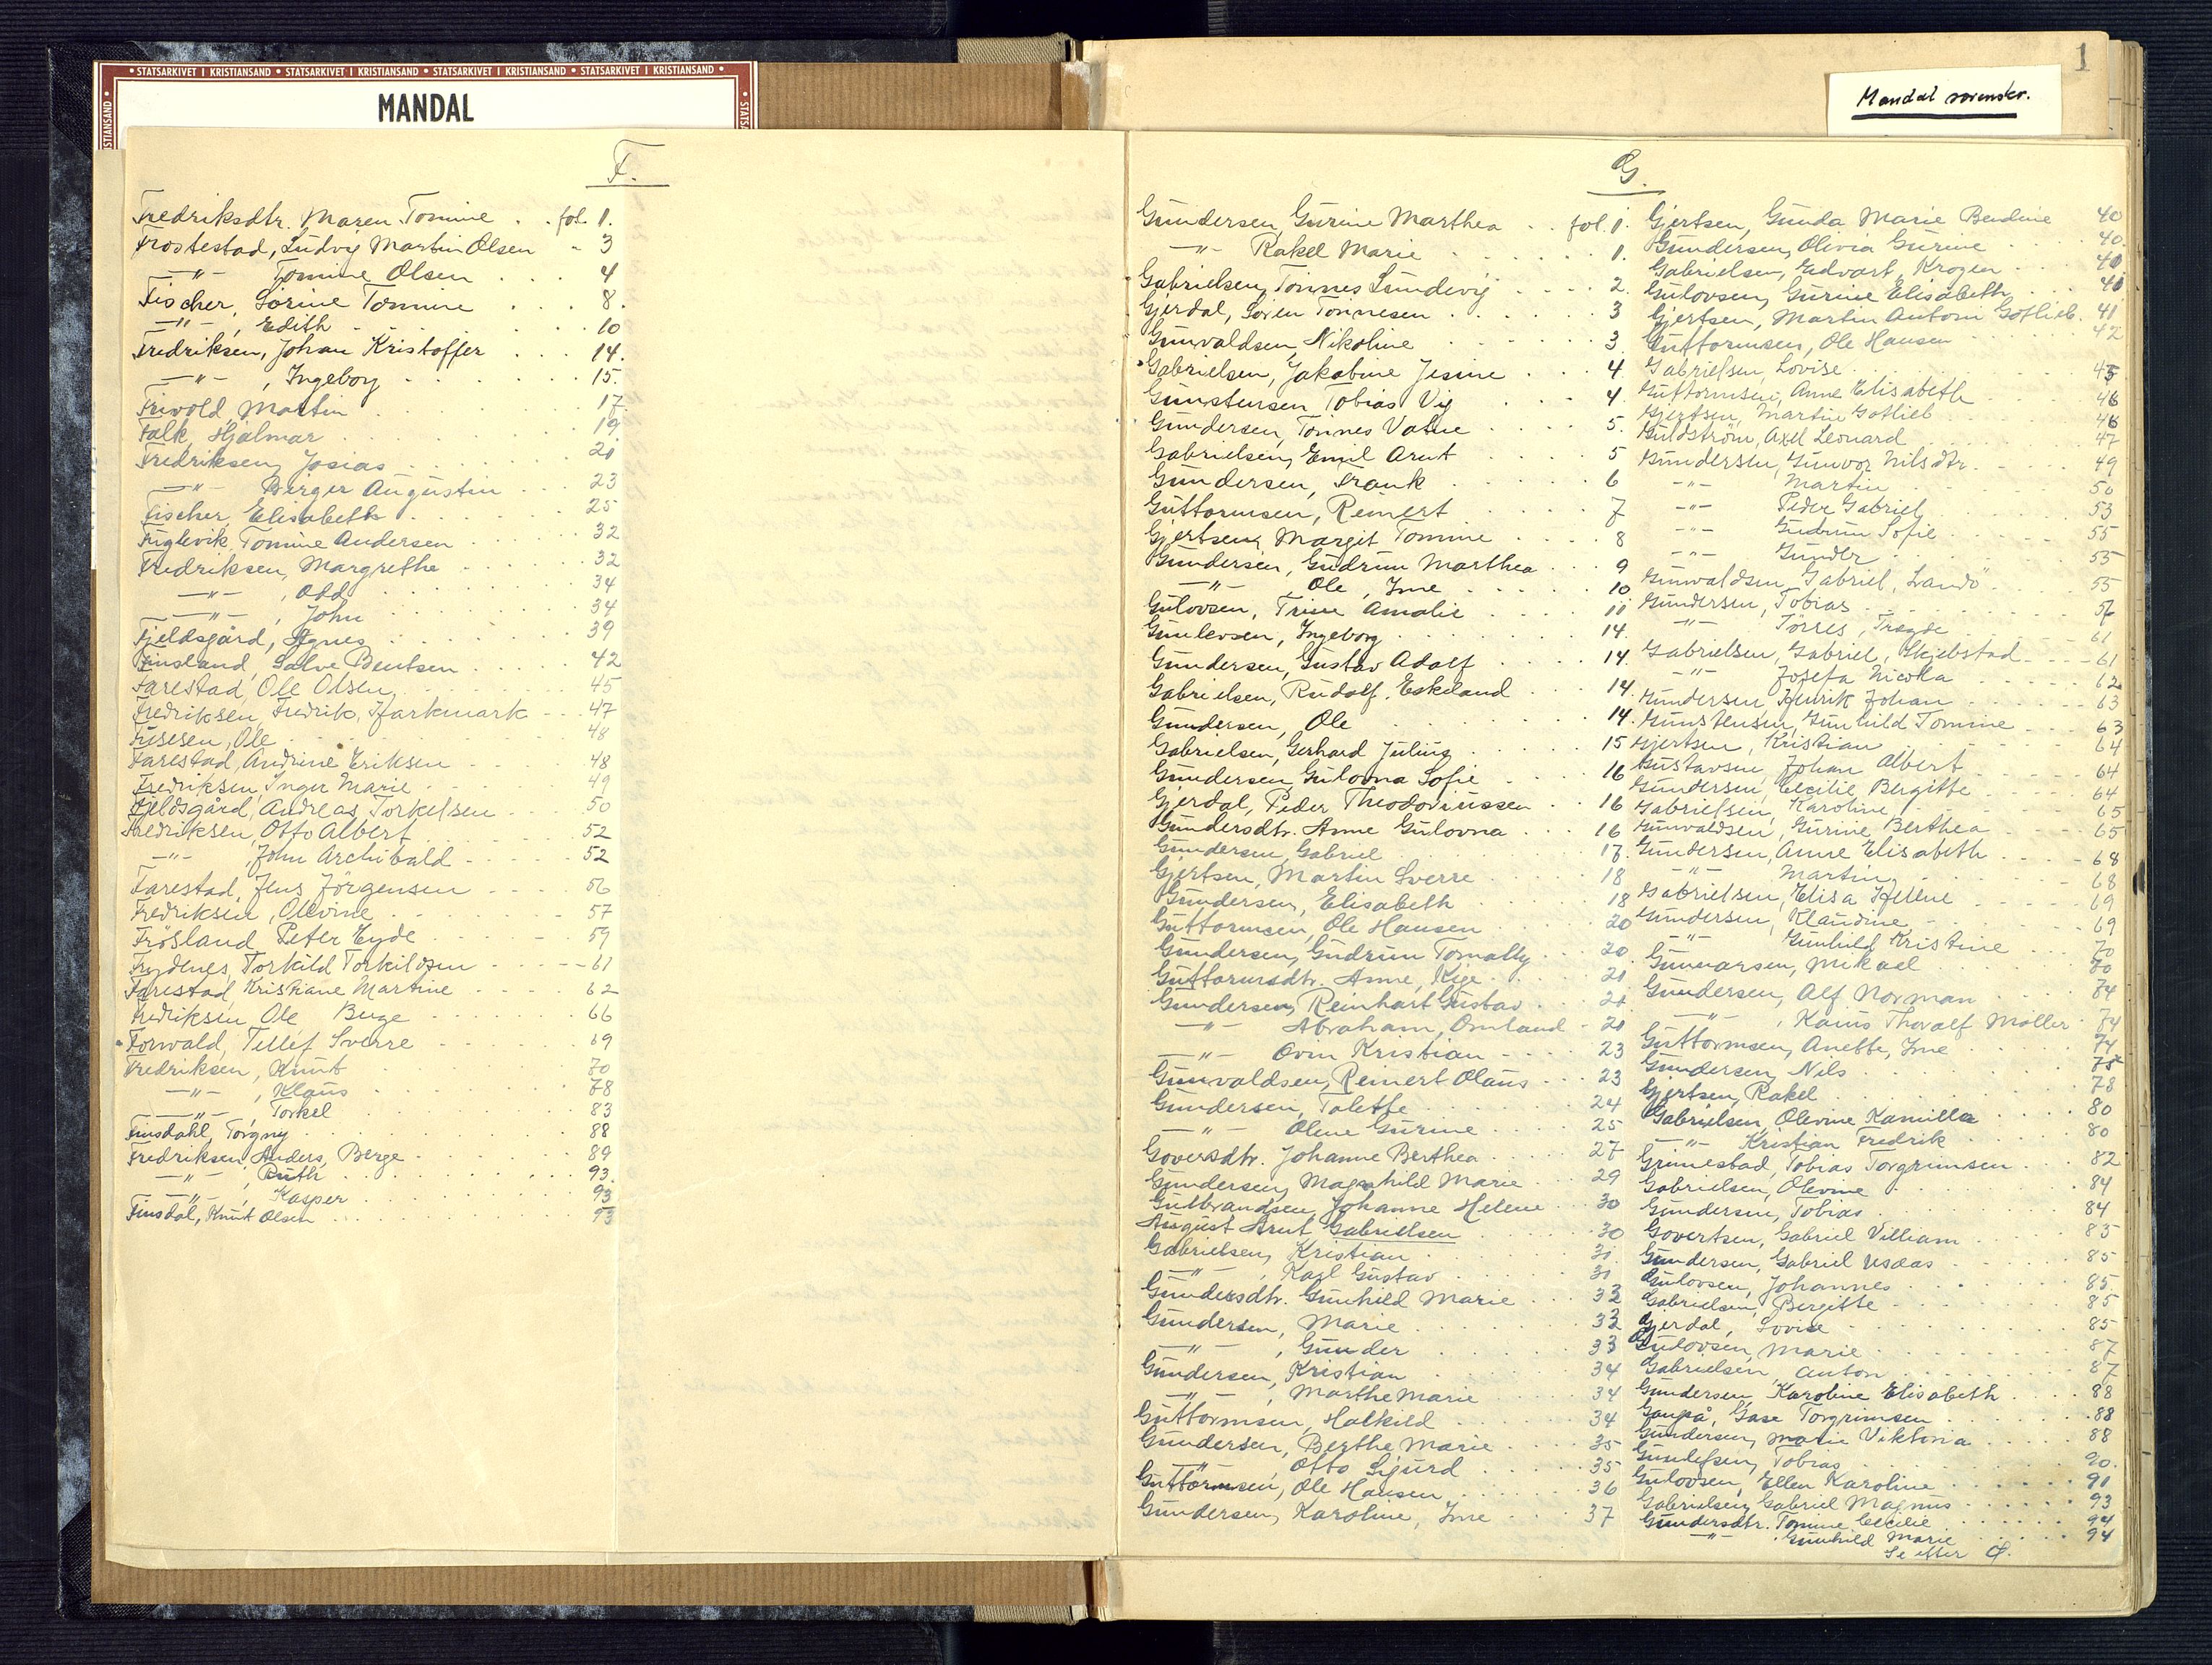 • STATSARKIVET I KRISTIANSAND • STATSARKIVET I KRISTIANSAND • STATSARKIVET I KRISTIANSAND • STATSARKIVET I KRISTIANSAND •
MANDAL
F.
Fredriksdtr. Maren Tomine . . fol. 1.
Frostestad, Ludvig Martin Olsen - 3
—"— Tomine Olsen . . . 4
Fischer, Sorine Tomine . . . 8.
—"— , Edith . . . 10
Fredriksen, Johan Kristoffer . . . 14.
—"— , Ingeborg . . . 15.
Frivold Martin . . . 17
Falk, Hjalmar . . . 19
Fredriksen, Josias . . . 21
—"— Berger Augustin . . . 23
Fischer, Elisabeth . . . 25
Fuglevik, Tomine Andersen . . . 32
Fredriksen, Margrethe . . . 32
—"— , Odd . . . 34
—"— , John . . . 34
Fjeldsgård, Agnes . . . 39
Finsland, Salve Bentsen . . . 42
Farestad, Ole Olsen . . . 45
Fredriksen, Fredrik, Harkmark . . . 47
Ole . . . 48
Farestad, Andrine Eriksen . . . 48
Fredriksen, Inger Marie . . . 49
Fjeldsgård, Andreas Torkelsen . . . 50
Fredriksen, Otto Albert . . . 52
—"— , John Archibald . . . 52
Farestad, Jens Jörgensen . . . 56
Fredriksen, Olevine . . . 57
Frösland Peter Eyde . . . 59
Frydenes, Torkild Torkildsen . . . 61
Farestad, Kristiane Martine . . . 62
Fredriksen Ole Buge . . . 66
Forwald, Tellef Sverre . . . 69
Fredriksen, Knut . . . 70
—"— , Klaus . . . 78
—"— , Torkel . . . 83
Finsdahl, Torgny . . . 88
Fredriksen, Anders, Berge . . . 89
—"— , Ruth . . . 93.
—"— , Kasper . . . 93
Finsdal, Knut Olsen . . . 93
1
Mandal sorenskr.
G.
Gundersen, Gurine Marthea . . fol. 1.
—"— Rakel Marie . . . 1.
Gabrielsen, Tönnes Lundevig . . . 2.
Gjerdal, Sören Tönnesen . . . 3
Gunvaldsen, Nikoline . . . 3.
Gabrielsen, Jakobine Jesine . . . 4
Gunstensen Tobias Vig . . . 4
Gundersen, Tönnes Valne . . . 5.
Gabrielsen, Emil Arnt . . . 5
Gundersen, Frank . . . 6
Guttormsen, Reinert . . . 7
Gjertsen, Margit Tomine . . . 8
Gundersen, Gudrun Marthea . . . 9
—"— Ole, Ime . . . 10
Gulovsen, Trine Amalie . . . 11
Gunlevsen, Ingeborg . . . 14.
Gundersen, Gustav Adolf . . . 14.
Gabrielsen, Rudolf, Eskeland . . . 14.
Gundersen, Ole . . . 14.
Gabrielsen, Gerhard Julius . . . 15
Gundersen, Gulovna Sofie . . . 16
Gjerdal, Peder Theodoriussen . . . 16
Gundersdtr. Anne Gulovna . . . 16
Gundersen, Gabriel . . . 17.
Gjertsen, Martin Sverre . . . 18
Gundersen, Elisabeth . . . 18
Guttormsen, Ole Hansen . . . 20
Gundersen, Gudrun Tomally . . . 20.
Guttormsdtr. Anne, Kige . . . 21
Gundersen, Reinhart Gustav . . . 21
—"— Abraham, Omland - 21
—"— Ovin Kristian . . . 23
Gunvaldsen, Reinert Olaus . . . 23
Gundersen, Talette . . . 24
—"— Oline Gurine . . . 25
Goversdtr. Johanne Berthea . . . 27
Gundersen, Magnhild Marie . . . 29
Gulbrandsen, Johanne Helene . . . 30
August Arnt Gabrielsen . . . 30
Gabrielsen, Kristian . . . 31
—"— , Karl Gustav . . . 31
Gundersdtr. Gunhild Marie . . . 32
Gundersen, Marie . . . 32
—"— , Gunder . . . 33
Gundersen, Kristian . . . 34
—"— , Marthe Marie . . . 34
Guttormsen, Halkild . . . 34
Gundersen, Berthe Marie . . . 35
—"— , Otto Sigurd . . . 35
Guttormsen, Ole Hansen . . . 36
Gundersen, Karoline, Ime . . . 37
Gjertsen, Gunda Marie Bendine 40
Gundersen, Olivia Gurine . . . 40.
Gabrielsen, Edvart, Krogen . . . 40
Gulovsen, Gurine Elisabeth . . . 41
Gjertsen, Martin Antom Gotlieb. 41
Guttormsen, Ole Hansen . . . 42
Gabrielsen, Lovise . . . 45
Guttormsen, Anne Elisabeth . . . 46
Gjertsen, Martin Gotlieb . . . 46
Guldström, Axel Leonard . . . 47
Gundersen, Gunvor Nilsdtr. . . . 49
—"— Martin . . . 50
—"— Peder Gabriel . . . 53
—"— Gudrun Sofie . . . 55
—"— Gunder . . . 55
Gunvaldsen, Gabriel, Landö . . . 55
Gundersen, Tobias . . . 56
—"— Törres, Tregde . . . 61
Gabrielsen, Gabriel, Skjebstad . . . 61
—"— Josefa Nicolia . . . 62
Gundersen, Henrik Johan . . . 63
Gunstensen, Gunhild Tomine . . . 63
Gjertsen, Kristian . . . 64
Gustavsen, Johan Albert . . . 64
Gundersen, Cecilie Bergitte . . . 64
Gabrielsen, Karoline . . . 65
Gunvaldsen, Gurine Berthea . . . 65
Gundersen, Anne Elisabeth . . . 68
—"— Martin . . . 68
Gabrielsen, Elisa Helene . . . 69
Gundersen, Klaudine . . . 69
—"— Gunhild Kristine . . . 70
Gunnarsen, Mikael . . . 70
Gundersen, Alf Norman . . . 74
—"— , Kaius Thoralf Möller . 74
Guttormsen, Anette, Ime . . . 74
Gundersen, Nils . . . 75
Gjertsen, Rakel . . . 78
Gabrielsen, Olevine Kamilla . . . 80
—"— Kristian Fredrik . . . 80
Grimestad, Tobias Torgrimsen . . . 82
Gabrielsen, Olevine . . . 84
Gundersen, Tobias . . . 84
Govertsen, Gabriel Villiam . . . 85
Gundersen, Gabriel . . . 85
Gulovsen, Johannes . . . 85.
Gabrielsen, Bergitte . . . 85
Gjerdal, Lovise . . . 85
Gulovsen, Marie . . . 87
Gabrielsen, Anton . . . 87
Gundersen, Karoline Elisabeth . . . 88
Gaupå, Gase Torgrimsen . . . 88
Gundersen, Marie Viktoria . . . 88
Gundersen, Tobias . . . 90.
Gulovsen, Ellen Karoline . . . 91
Gabrielsen, Gabriel Magnus . . . 93
Gundersdtr. Tomine Cecilie . . . 94
—"— , Gunhild Marie . . . 94
Se efter Ø.